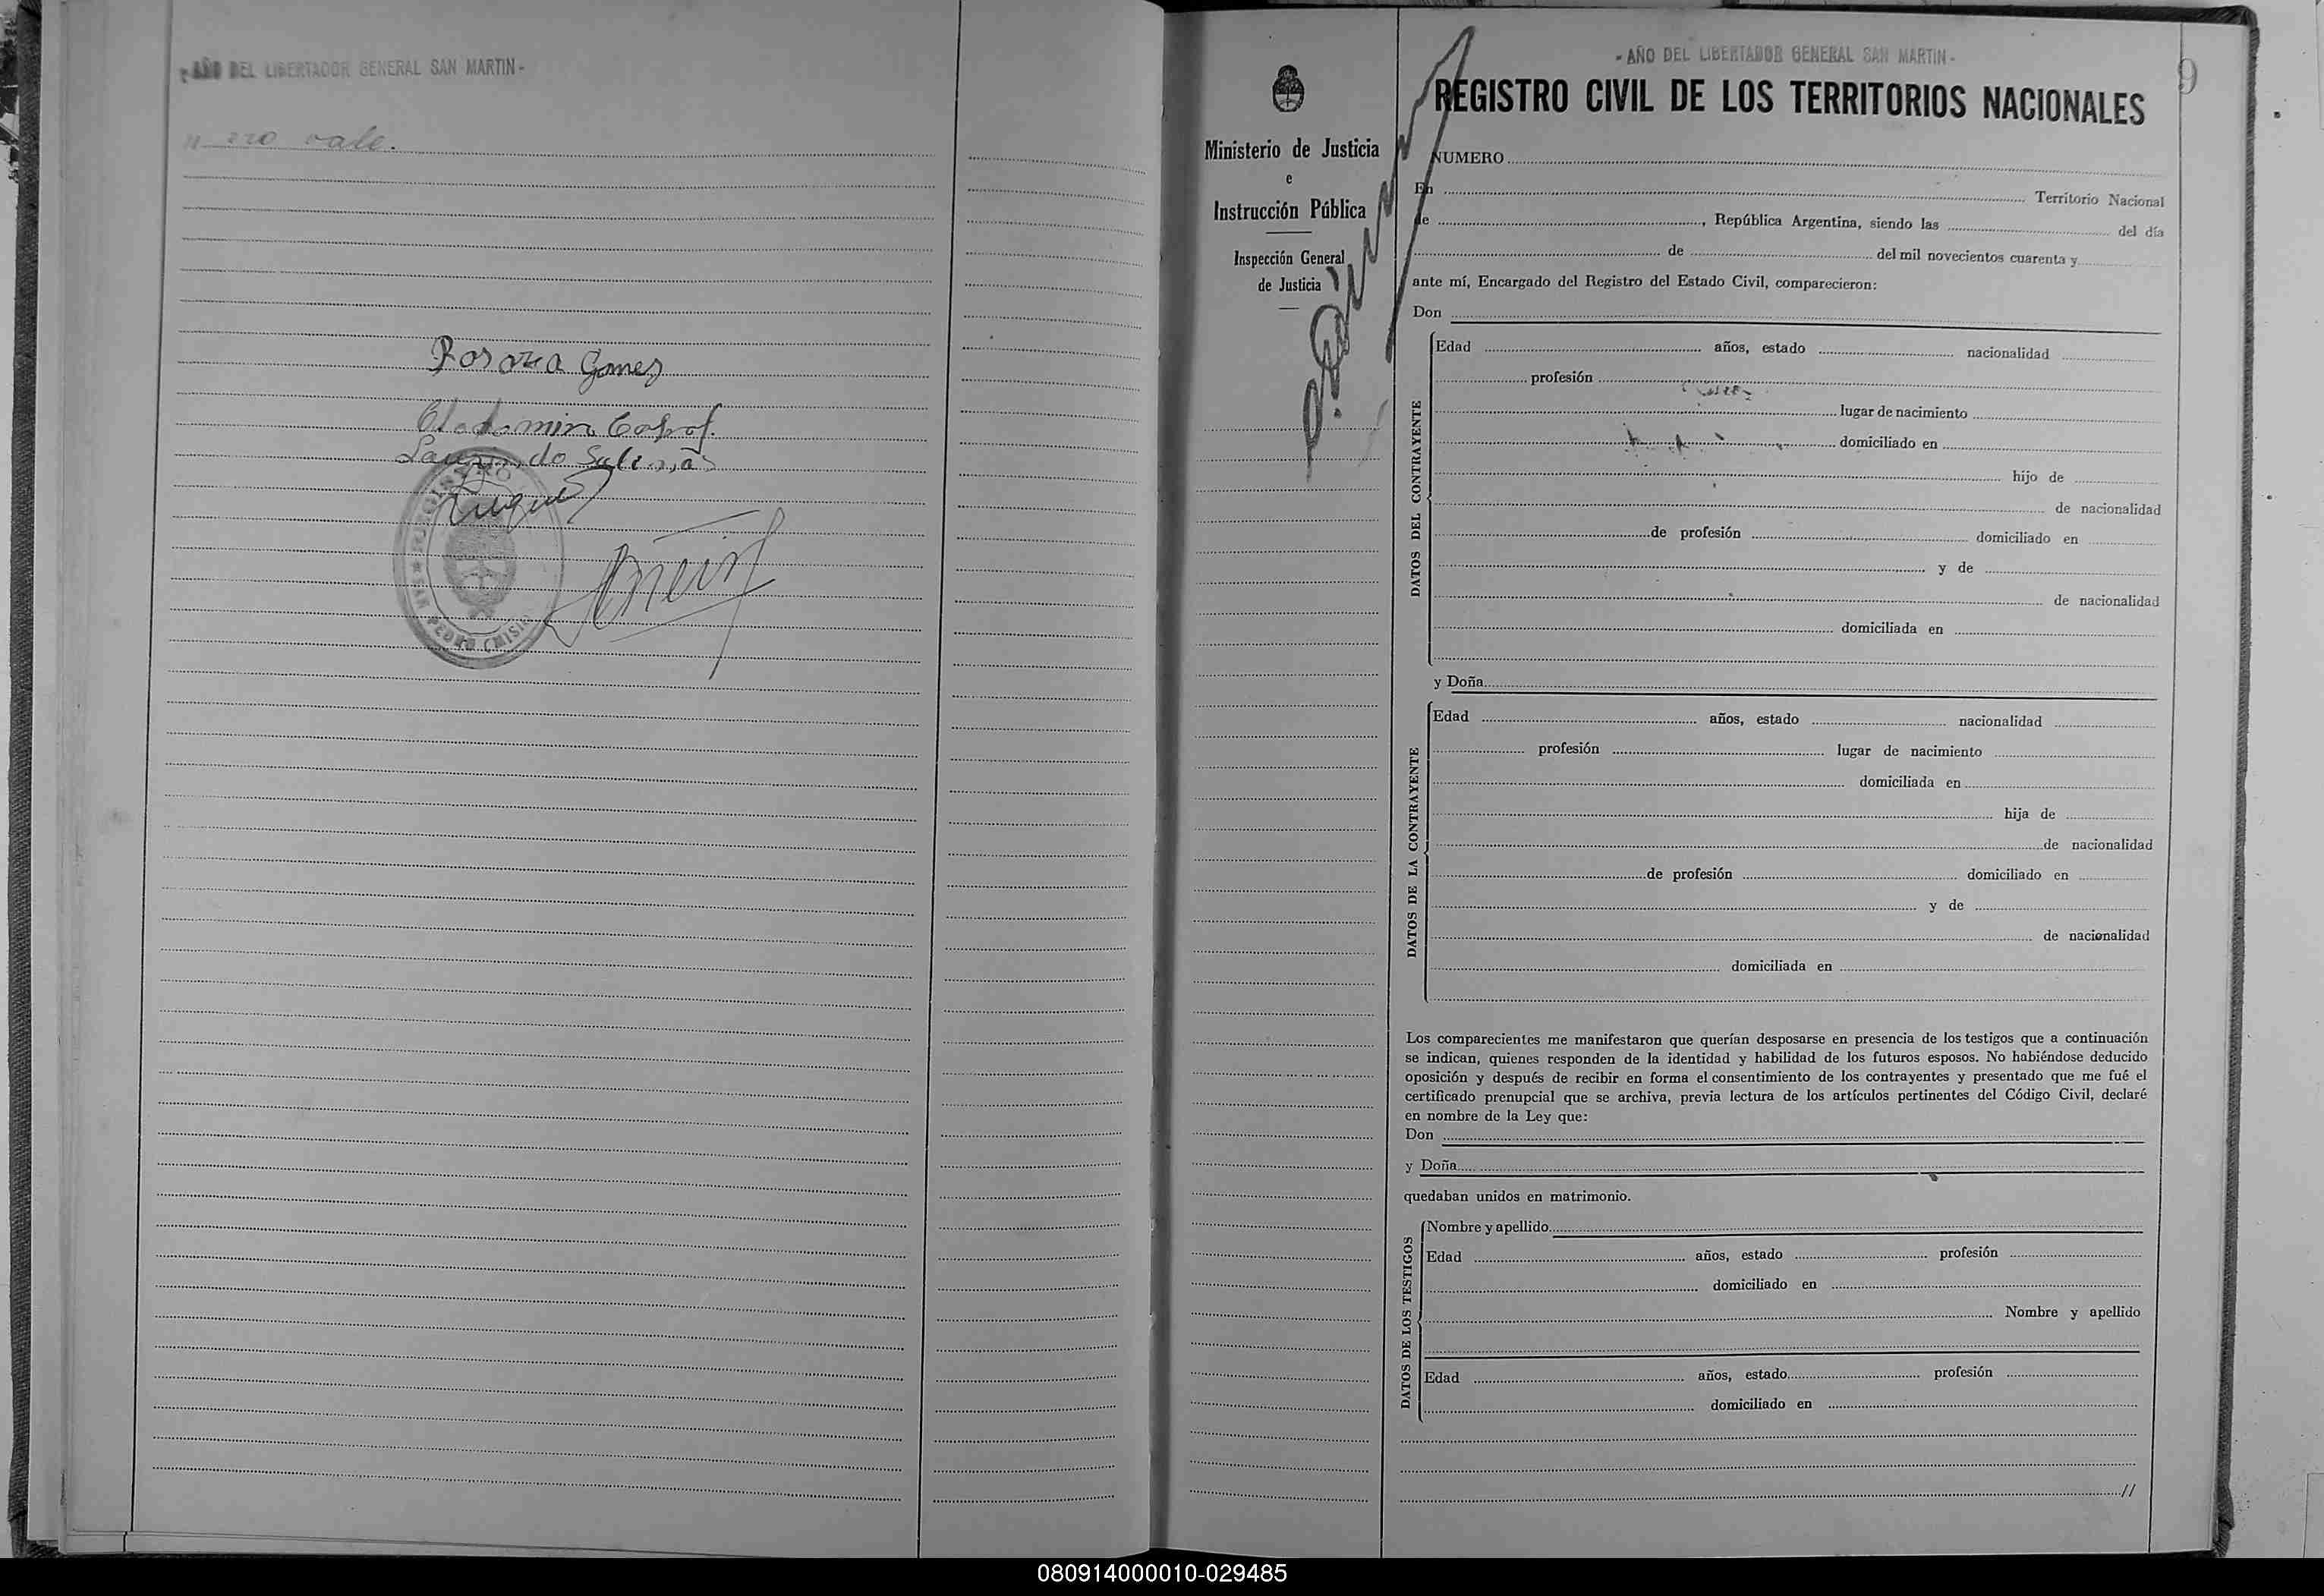 - AÑO DEL LIBERTADOR GENERAL SAN MARTIN -
vale.
Gomez
Salinas
SAN PEDRO (MISIO
- AÑO DEL LIBERTADOR GENERAL SAN MARTIN -
9
Ministerio de Justicia
e
Instrucción Pública
Inspección General
de Justicia
REGISTRO CIVIL DE LOS TERRITORIOS NACIONALES
NUMERO
En Territorio Nacional
de , República Argentina, siendo las del día
de del mil novecientos cuarenta y
ante mí, Encargado del Registro del Estado Civil, comparecieron:
Don
DATOS DEL CONTRAYENTE
Edad años, estado nacionalidad
profesión
lugar de nacimiento
domiciliado en
hijo de
de nacionalidad
de profesión domiciliado en
y de
de nacionalidad
domiciliada en
y Doña
DATOS DE LA CONTRAYENTE
Edad años, estado nacionalidad
profesión lugar de nacimiento
domiciliada en
hija de
de nacionalidad
de profesión domiciliado en
y de
de nacionalidad
domiciliada en
Los comparecientes me manifestaron que querían desposarse en presencia de los testigos que a continuación
se indican, quienes responden de la identidad y habilidad de los futuros esposos. No habiéndose deducido
oposición y después de recibir en forma el consentimiento de los contrayentes y presentado que me fué el
certificado prenupcial que se archiva, previa lectura de los artículos pertinentes del Código Civil, declaré
en nombre de la Ley que:
Don
y Doña
quedaban unidos en matrimonio.
DATOS DE LOS TESTIGOS
Nombre y apellido
Edad años, estado profesión
domiciliado en
Nombre y apellido
Edad años, estado profesión
domiciliado en
//
080914000010-029485